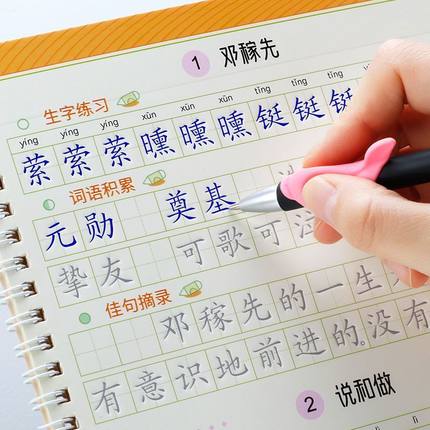 1 邓稼先
生字练习
yíng yíng yíng xūn xūn xūn tǐng tǐng tǐng
萦 萦 萦 曛 曛 曛 铤 铤 铤
词语积累
元勋 奠基
挚友 可歌可泣
佳句摘录
邓稼先的一生
有意识地前进的。没有
2 说和做